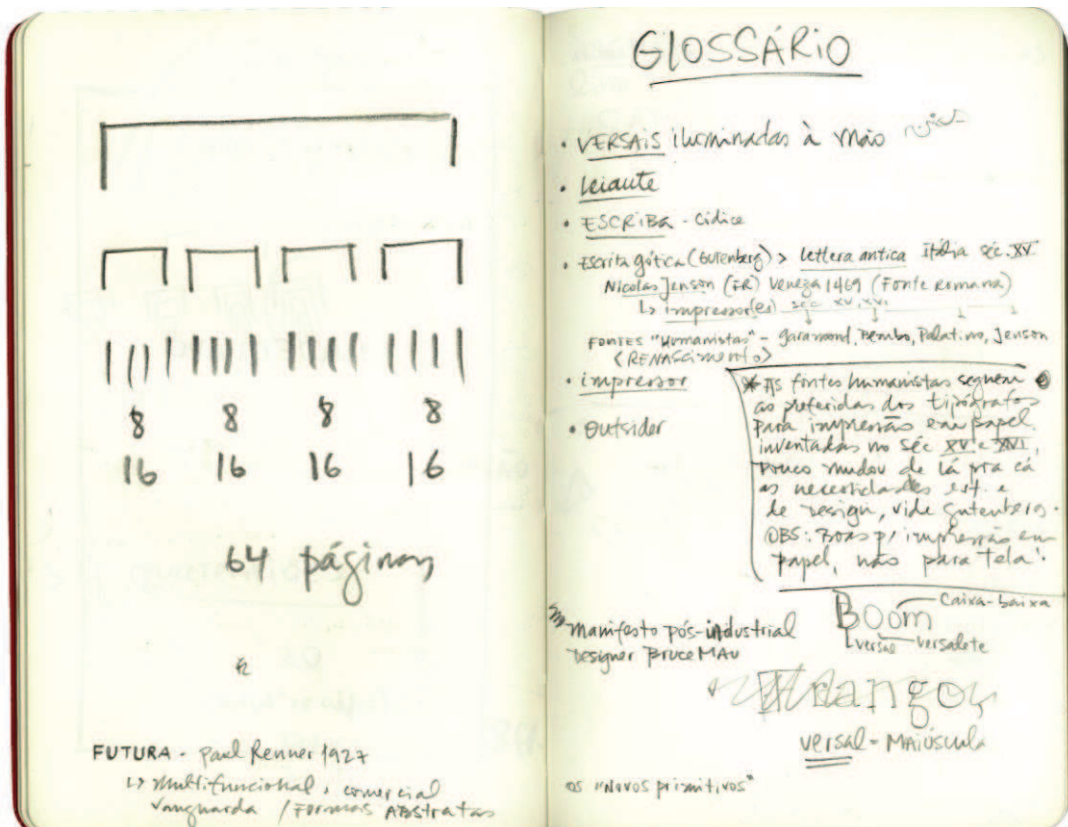 8 8 8 8
16 16 16 16
64 páginas
FUTURA - Paul Renner 1927
↳ multifuncional, comercial
vanguarda / Formas ABstratas
GLOSSÁRiO
• VERSAiS iluminadas à mão
• leiaute
• ESCRiBA - Códice
• Escrita gótica (Gutenberg) > lettera antica Itália séc. XV.
Nicolas Jenson (FR) Veneza 1469 (Fonte Romana)
↳ impressor(es) séc XV, XVI
FONTES "Humanistas" - garamond, Bembo, Palatino, Jenson
<RENASCimento>
• impressor
• outsider
* As fontes humanistas seguem
as preferidas dos tipógrafos
para impressão em papel.
inventadas no séc XV e XVI,
pouco mudou de lá pra cá
as necessidades est. e
de design, vide gutenberg.
OBS: Boas p/ impressão em
papel, não para tela!
BOom Caixa-baixa
versal versalete
manifesto pós-industrial
Designer Bruce MAu
versal - MAiúscula
os "Novos primitivos"